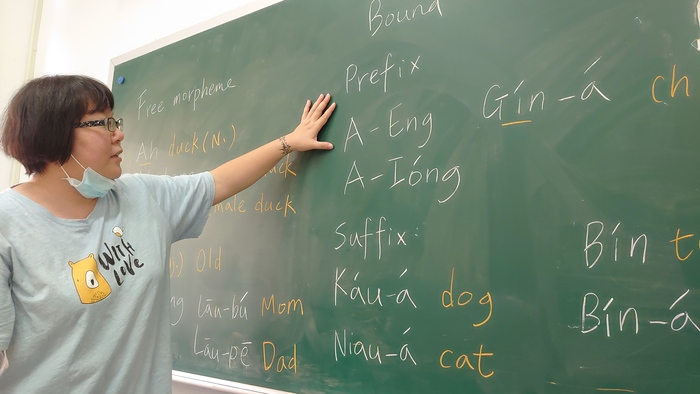 Free morpheme
Ah duck (N.)
duck
male duck
Old
Lāu-bú Mom
Lāu-pē Dad
Bound
Prefix
A-Eng
A-Ióng
Suffix:
Káu-á dog
Niau-á cat
Gín-á ch
Bín t
Bín-á
WITH
LOVE